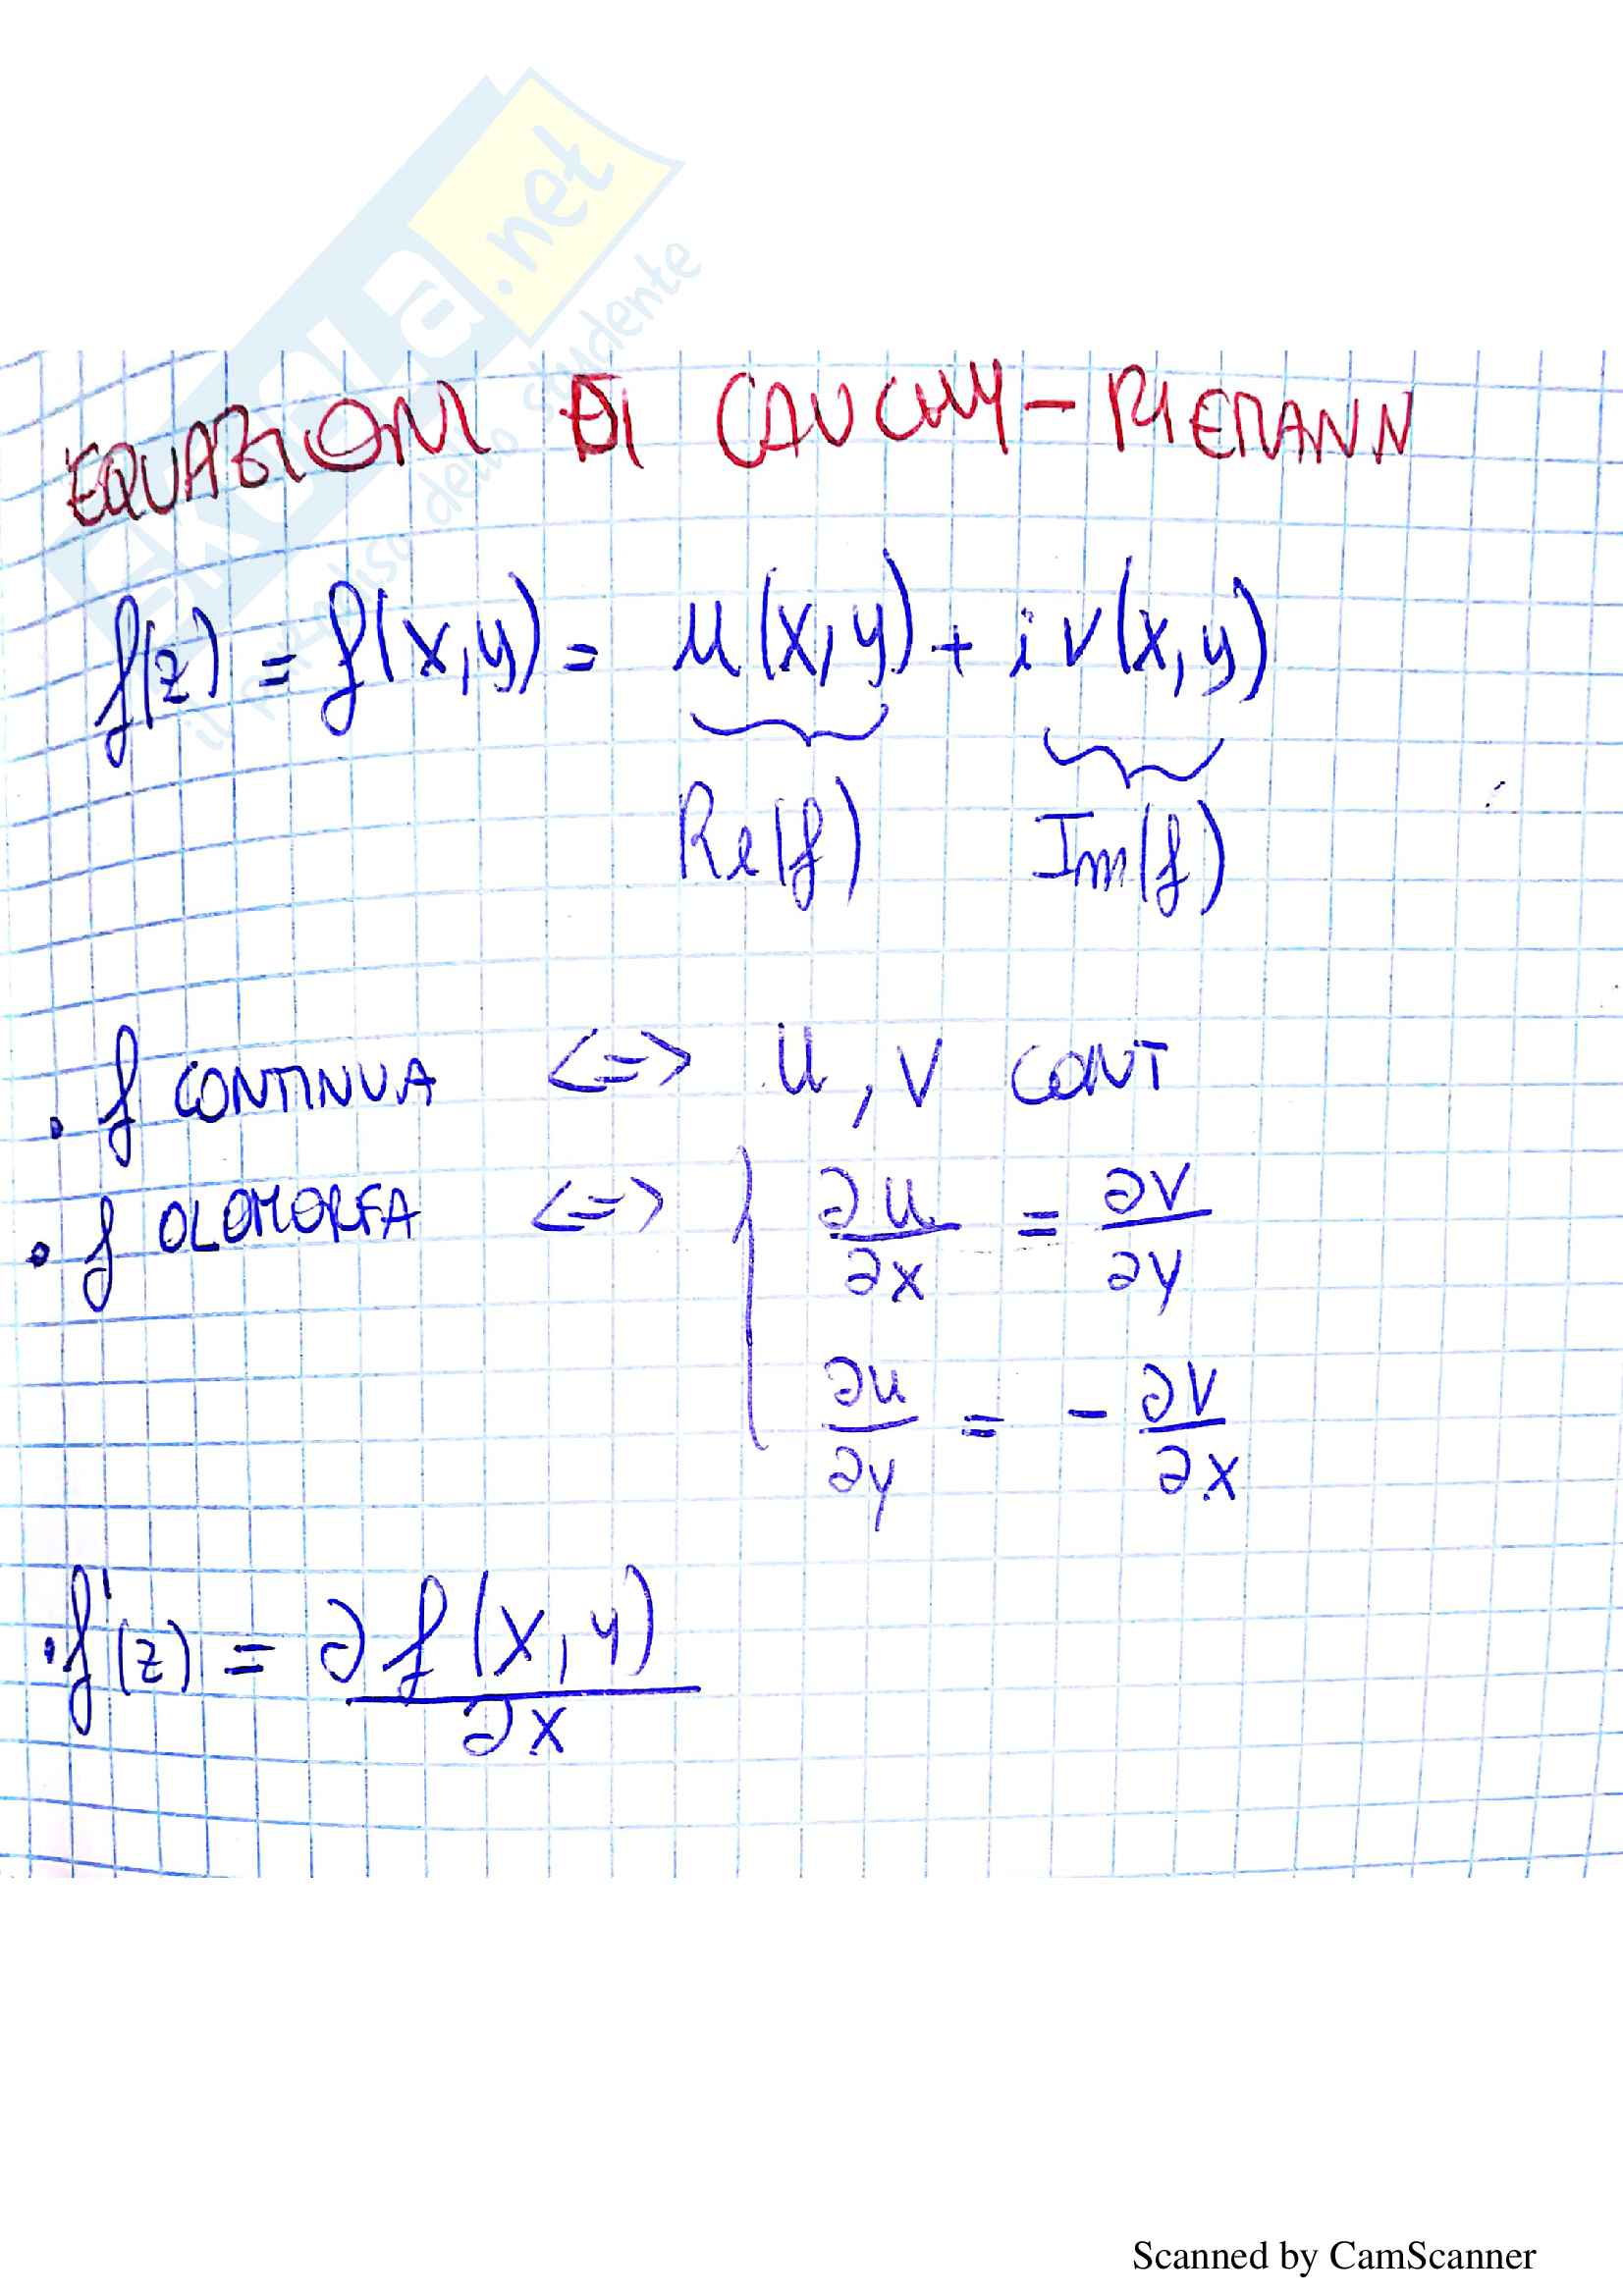 skuola.net
il paradiso dello studente
EQUAZIONI DI CAUCHY-RIEMANN
f(z) = f(x,y) = u(x,y) + i v(x,y)
Re(f) Im(f)
• f CONTINUA <=> u, v CONT
• f OLOMORFA <=> { ∂u/∂x = ∂v/∂y
∂u/∂y = - ∂v/∂x
• f'(z) = ∂f(x,y)/∂x
Scanned by CamScanner